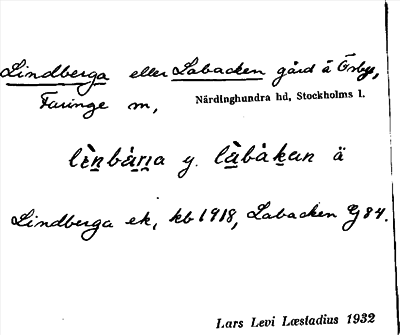 Lindberga eller Labacken gård å Örby,
Faringe sn,
Närdinghundra hd, Stockholms l.
lìṉbår̠n̠a y. là̱båḵan ä
Lindberga ek, kb 1918, Labacken G 84.
Lars Levi Læstadius 1932